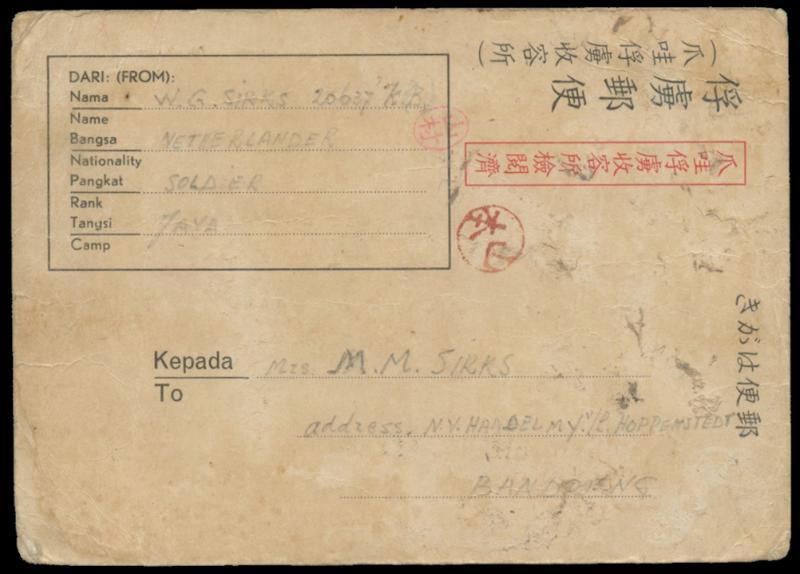 （爪哇俘虜收容所）
俘虜郵便
爪哇俘虜收容所檢閲濟
郵便はがき
DARI: (FROM):
Nama W. G. SIRKS 20637 K.B.
Name
Bangsa NETHERLANDER
Nationality
Pangkat SOLDIER
Rank
Tangsi JAVA
Camp
Kepada Mrs. M. M. SIRKS
To
address. N.V. HANDELMY.
HOPPENSTEDT
BANDOENG